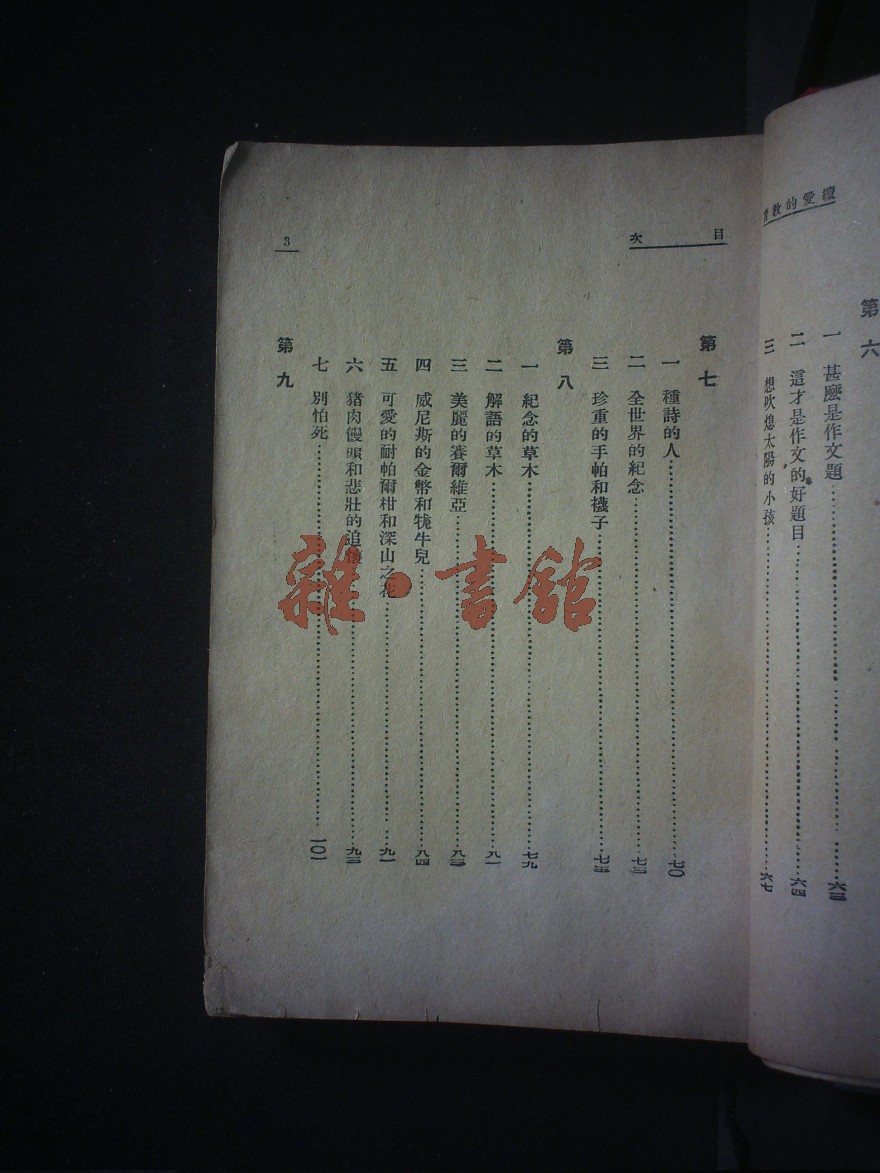 續愛的教育
第六
一 甚麼是作文題 六三
二 這才是作文的好題目 六四
三 想吹熄太陽的小孩 六七
目次
3
第七
一 種詩的人 七〇
二 全世界的紀念 七三
三 珍重的手帕和襪子 七五
第八
一 紀念的草木 七九
二 解語的草木 八一
三 美麗的賽爾維亞 八三
四 威尼斯的金幣和犢牛兒 八四
五 可愛的耐帕爾柑和深山之花 九一
六 猪肉饅頭和悲壯的追懷 九三
七 別怕死 一〇一
第九
雜·書館